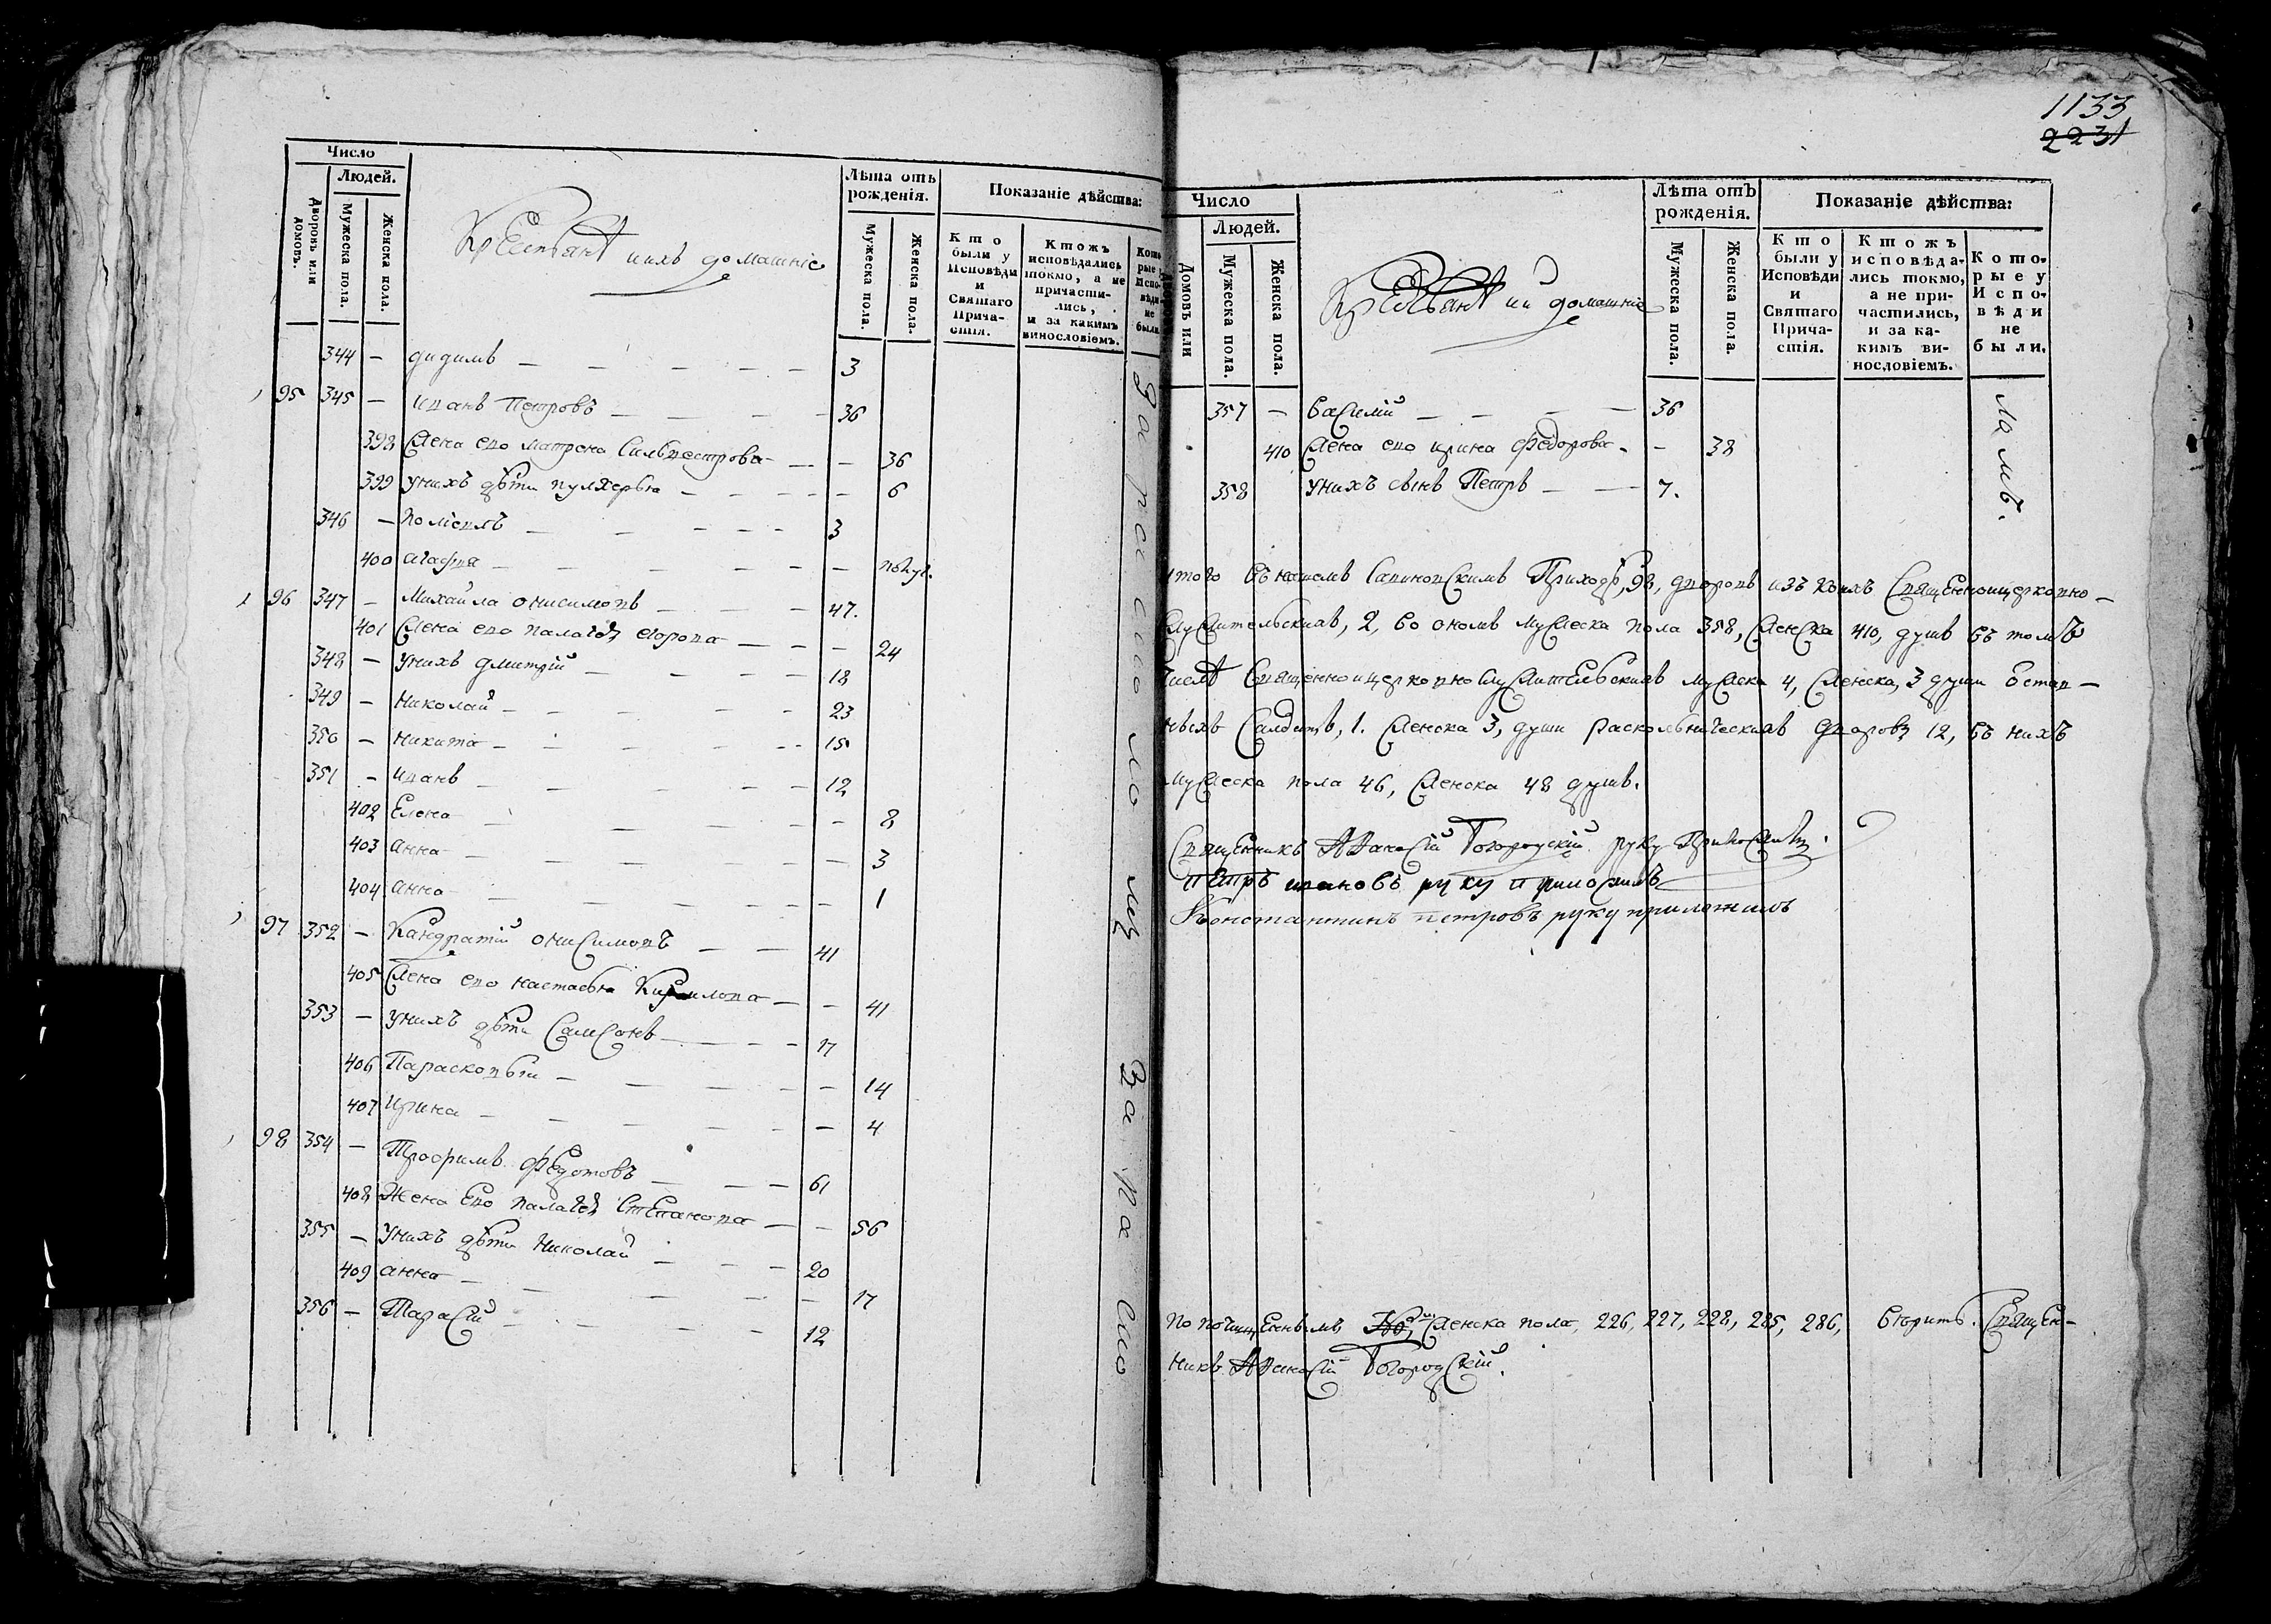 Число
Людей.
Дворовъ или домовъ.
Мужеска пола.
Женска пола.
Крестьянѣ ихъ домашніе
Лѣта отъ рожденія.
Мужеска пола.
Женска пола.
Показаніе дѣйства:
Кто были у Исповѣди и Святаго Прича-стія.
Ктожъ исповѣдались токмо, а не причасти-лись, и за какимъ винословіемъ.
Кото рые Испо-вѣди не были
344 — дидимъ — 3
95 345 — иванъ Петровъ — 36
398 Жена ево матрена Сильвестрова — 36
399 Унихъ дѣти пулхерья — 6
346 — — 3
400 агафья —
96 347 — Михайла онисимовъ — 47.
401 Жена ево палагѣя егорова — 24
348 — Унихъ дмитрій — 18
349 — Николай — 23
350 — Никита — 15
351 — иванъ — 12
402 Елена — 8
403 анна — 3
404 анна — 1
97 352 — Кандратій онисимовъ — 41
405 Жена ево настасья Кирилова — 41
353 — Унихъ дѣти Самсонъ — 17
406 Парасковья — 14
407 Ирина — 4
98 354 — Трофимъ Федотовъ — 61
408 Жена Ево палагѣя Степанова — 56
355 — Унихъ дѣти Николай — 20
409 анна — 17
356 — Тарасій — 12
1133
2231
Число
Людей.
Домовъ или
Мужеска пола.
Женска пола.
Крестьянѣ ий домашніе
Лѣта отъ рожденія.
Мужеска пола.
Женска пола.
Показаніе дѣйства:
Кто были у Исповѣди и Святаго Прича-стія.
Ктожъ исповѣда-лись токмо, а не при-частились, и за ка-кимъ ви-нословіемъ.
Кото-рые у Испо-вѣди не были.
357 — Василій — 36
410 Жена ево ирина Федорова — 38
358 Унихъ сынъ Петръ — 7.
итого Въ намъ Приходѣ, 98, дворовъ изъ коихъ Священноцерковно-
служительскихъ, 2, Во ономъ мужеска пола 358, Женска 410, душъ въ томъ
числѣ Священноицерковнослужительскихъ мужеска 4, Женска, 3 души
Салдатъ, 1. Женска 3, души раскольническихъ дворовъ 12, въ нихъ
Мужеска пола 46, Женска 48 душъ.
Священникъ Афанасій Богородскій руку Приложилъ.
Петръ ивановъ руку приложилъ
Константинъ петровъ руку приложилъ
По Женска пола, 226, 227, 228, 285, 286, Вѣрить. Священ-
никъ Афанасій Богородскій.